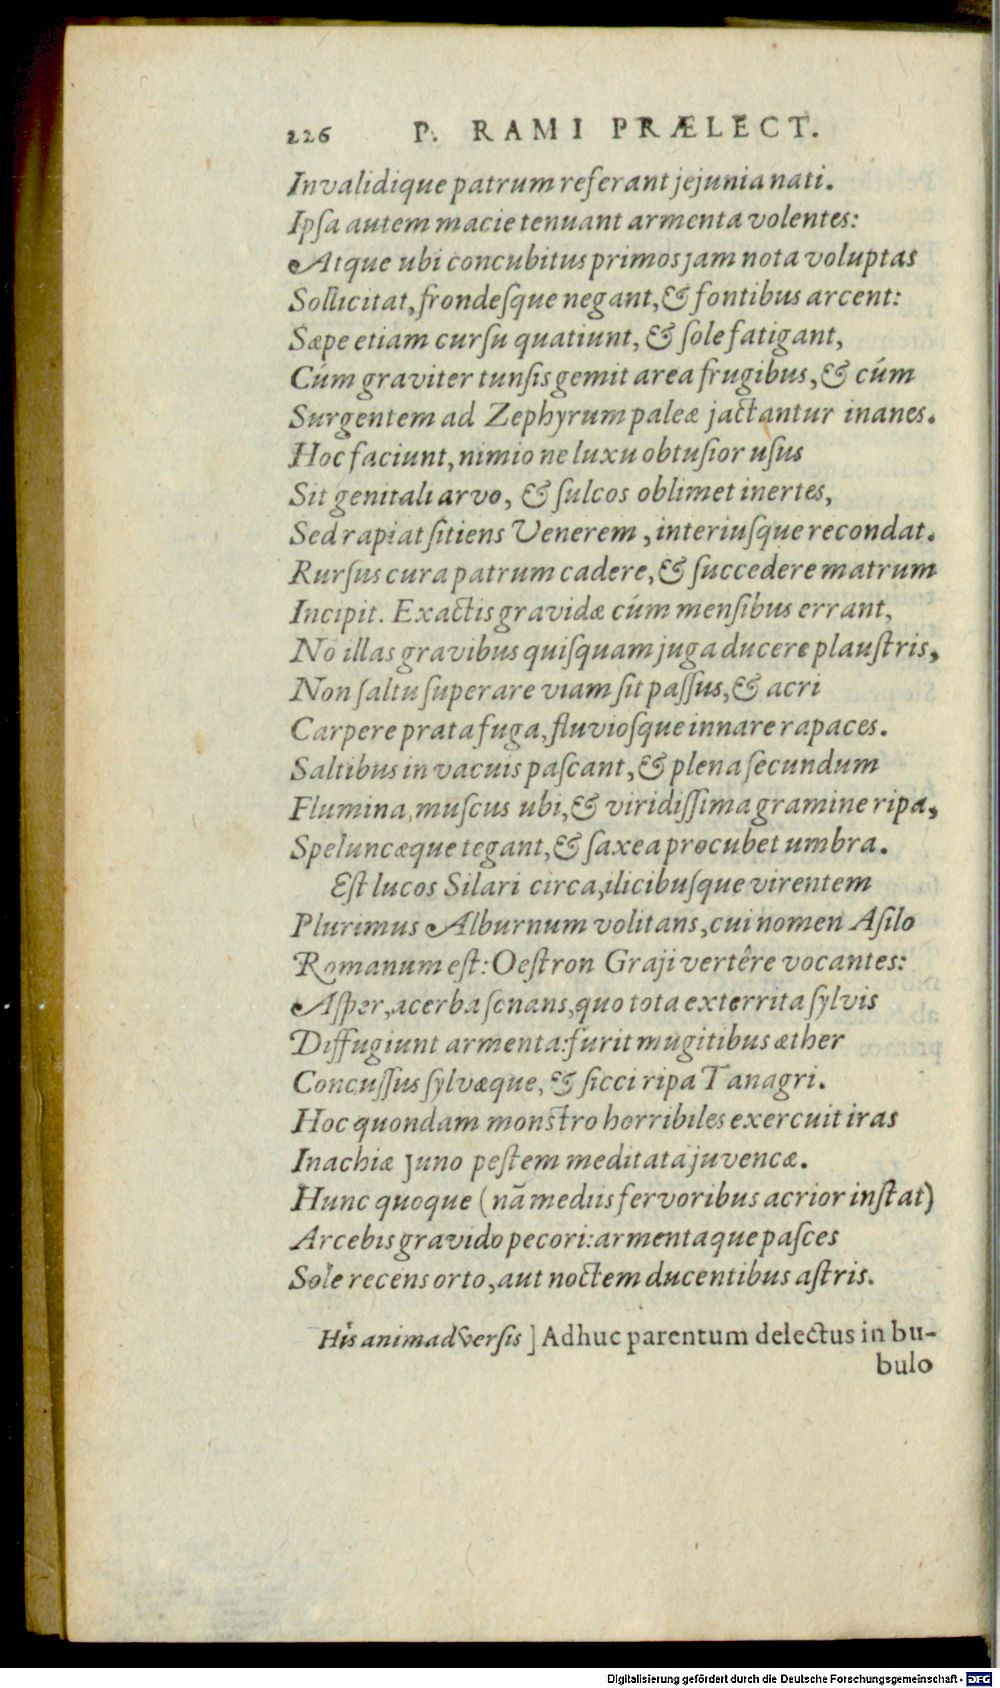 226 P. RAMI PRÆLECT.
Invalidique patrum referant jejunia nati.
Ipſa autem macie tenuant armenta volentes:
Atque ubi concubitus primos jam nota voluptas
Sollicitat, frondeſque negant, & fontibus arcent:
Sæpe etiam curſu quatiunt, & ſole fatigant,
Cúm graviter tunſis gemit area frugibus, & cúm
Surgentem ad Zephyrum paleæ jactantur inanes.
Hoc faciunt, nimio ne luxu obtuſior uſus
Sit genitali arvo, & ſulcos oblimet inertes,
Sed rapiat ſitiens Venerem, interiuſque recondat.
Rurſus cura patrum cadere, & ſuccedere matrum
Incipit. Exactis gravidæ cúm menſibus errant,
Nō illas gravibus quiſquam juga ducere plauſtris,
Non ſaltu ſuperare viam ſit paſſus, & acri
Carpere prata fuga, fluvioſque innare rapaces.
Saltibus in vacuis paſcant, & plena ſecundum
Flumina, muſcus ubi, & viridiſſima gramine ripa,
Speluncæque tegant, & ſaxea procubet umbra.
Eſt lucos Silari circa, ilicibuſque virentem
Plurimus Alburnum volitans, cui nomen Aſilo
Romanum eſt: Oeſtron Graji vertêre vocantes:
Aſper, acerba ſonans, quo tota exterrita ſylvis
Diffugiunt armenta: furit mugitibus æther
Concuſſus ſylvæque, & ſicci ripa Tanagri.
Hoc quondam monſtro horribiles exercuit iras
Inachiæ Juno peſtem meditata juvencæ.
Hunc quoque (nā mediis fervoribus acrior inſtat)
Arcebis gravido pecori: armentaque paſces
Sole recens orto, aut noctem ducentibus aſtris.
His animadverſis] Adhuc parentum delectus in bu-
bulo
Digitalisierung gefördert durch die Deutsche Forschungsgemeinschaft - DFG